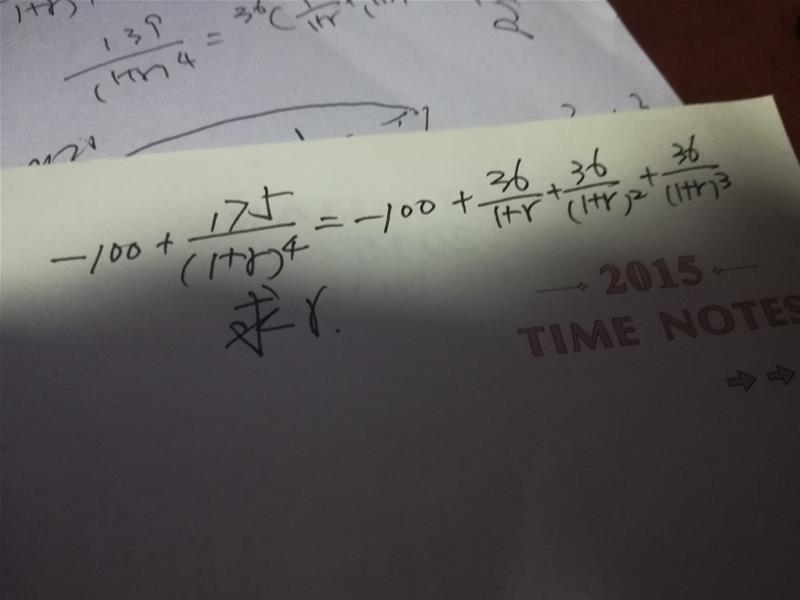 139/(1+r)^4 = 36(
-100 + 175/(1+r)^4 = -100 + 36/(1+r) + 36/(1+r)^2 + 36/(1+r)^3
求r.
2015
TIME NOTES